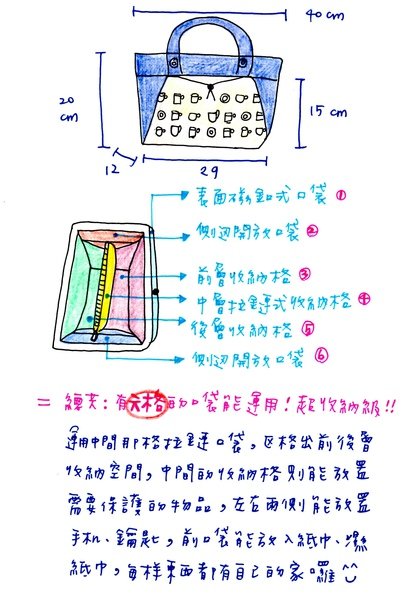 40 cm
20 cm
15 cm
12
29
表面磁釦式口袋 ①
側邊開放口袋 ②
前層收納格 ③
中層拉鍊式收納格 ④
後層收納格 ⑤
側邊開放口袋 ⑥
= 總共:有六格的口袋能運用!超收納級!!
運用中間那格拉鍊口袋,區格出前後層
收納空間,中間的收納格則能放置
需要保護的物品,左右兩側能放置
手机、鑰匙,前口袋能放入紙巾、濕
紙巾,每樣東西都有自己的家囉